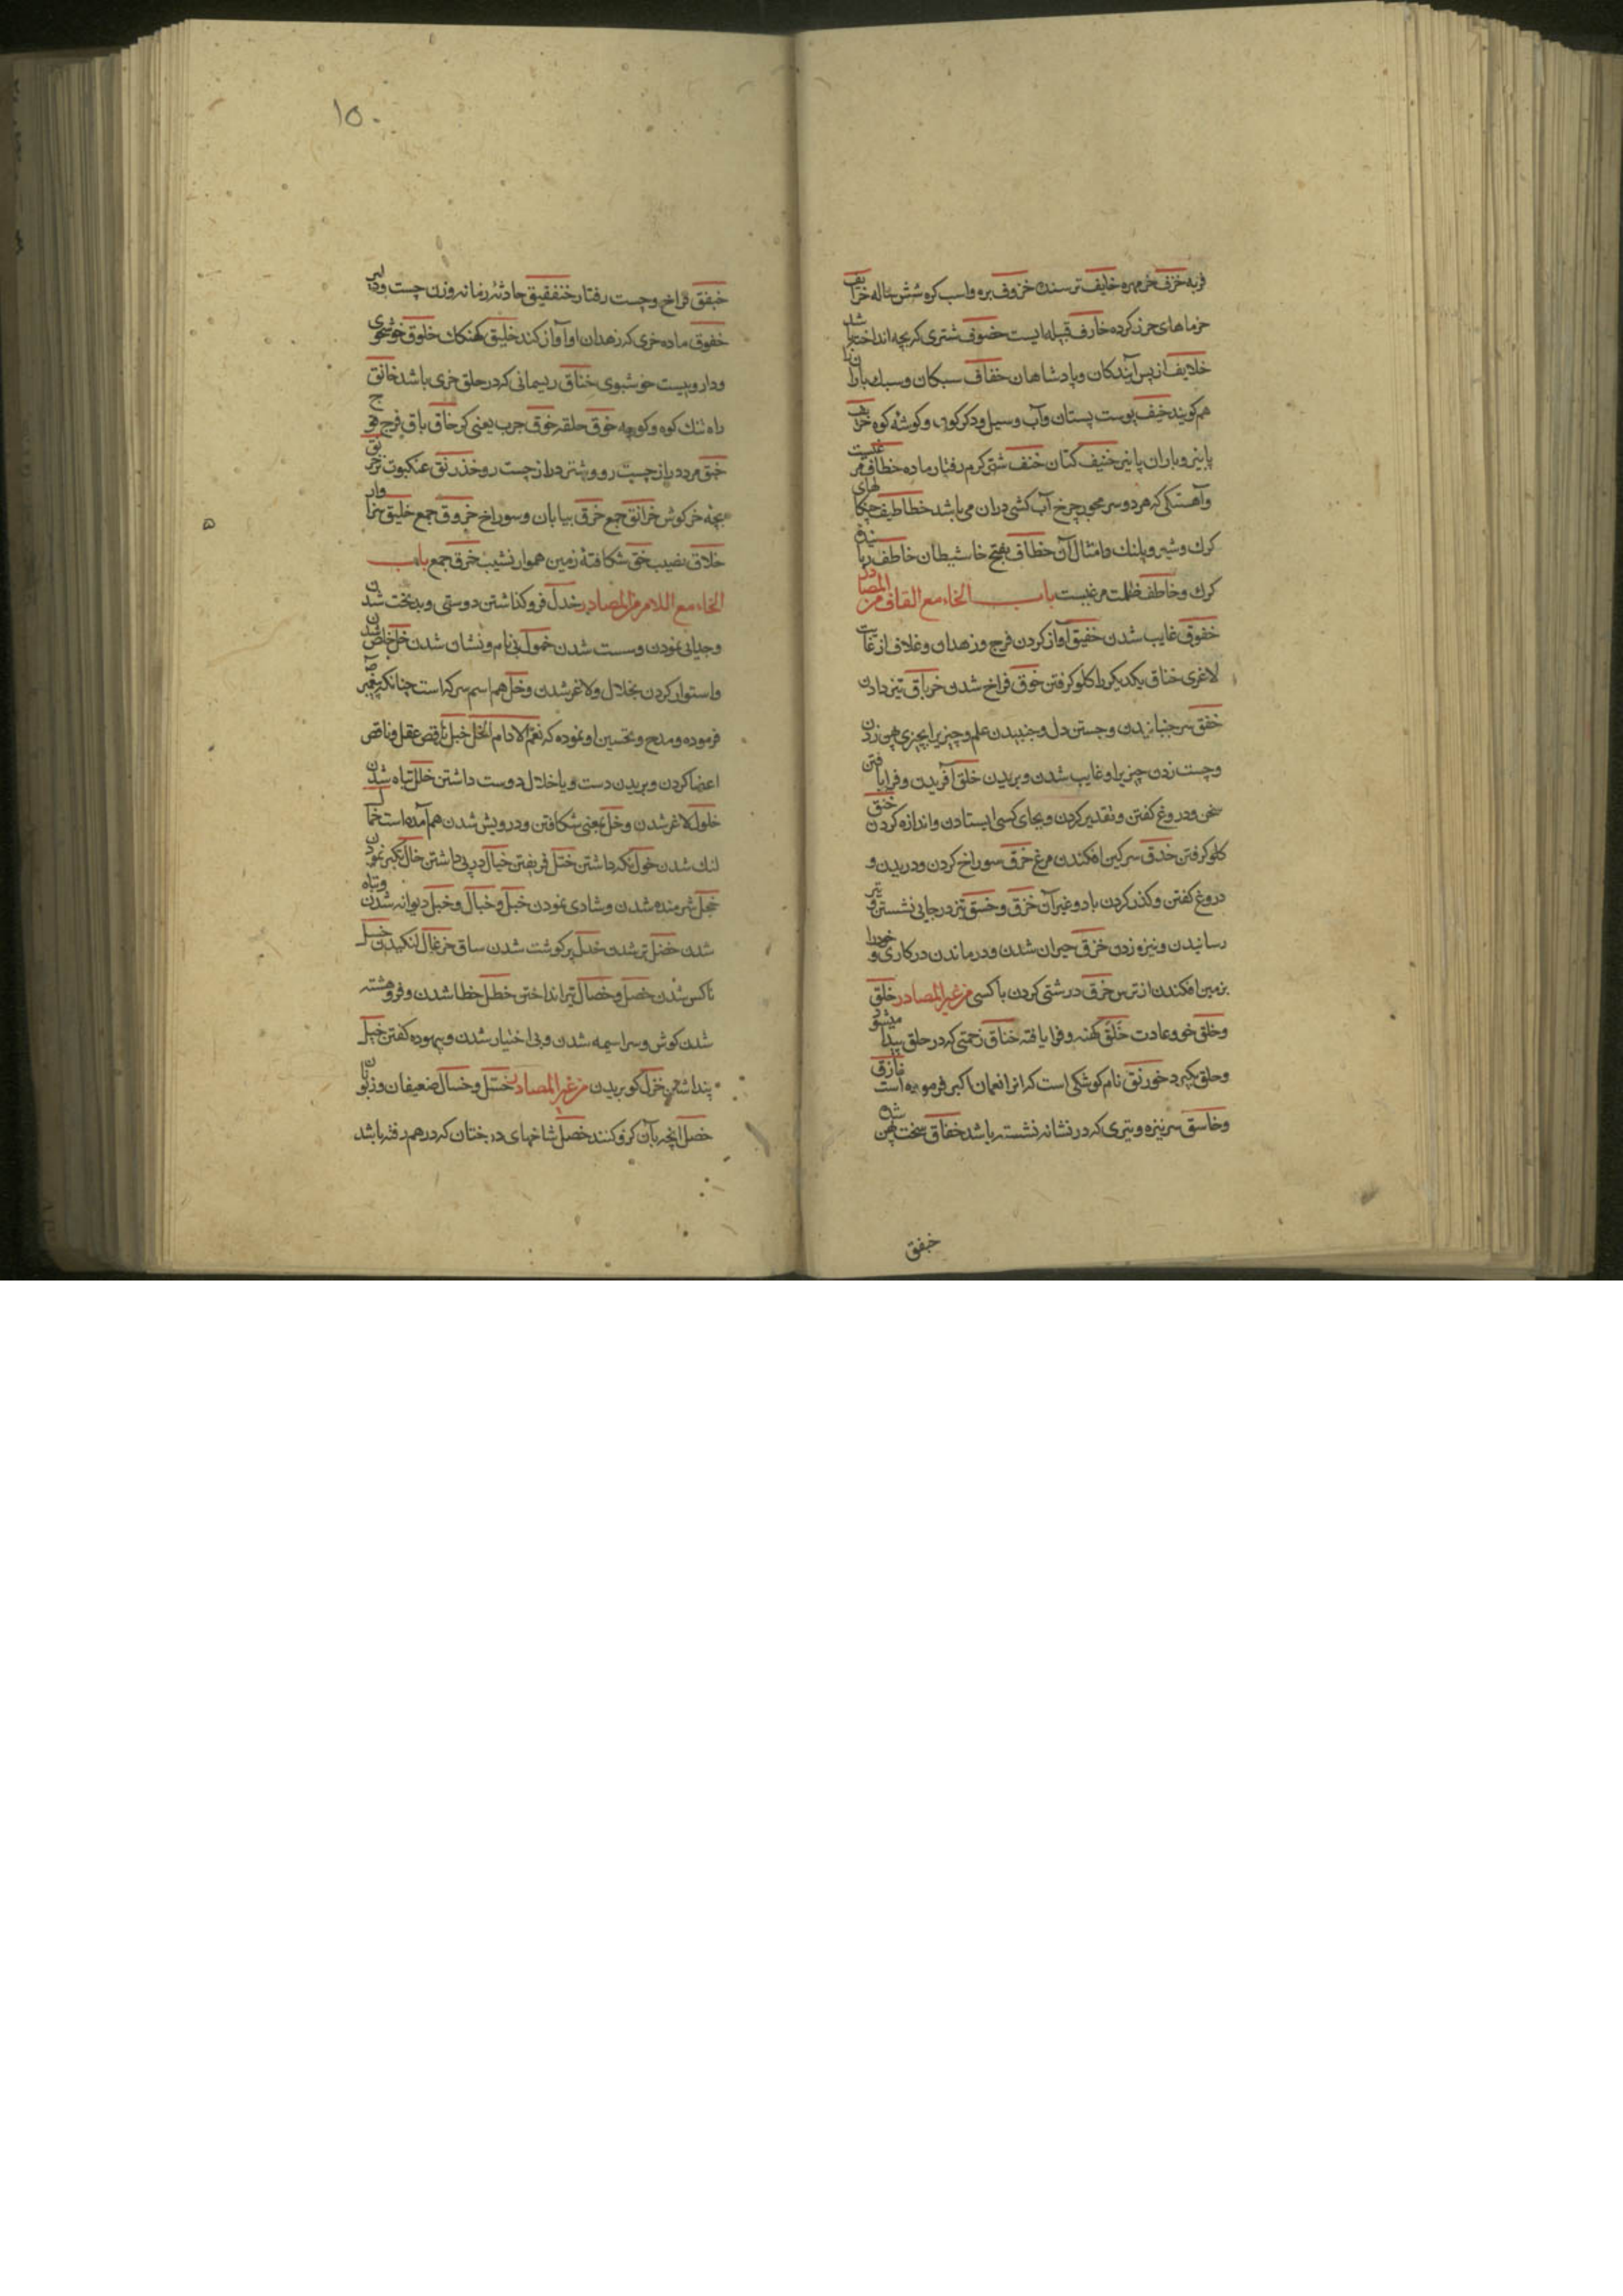 فربه خزف خرمهره خایف ترسنده خروف بره واسب کره شش ماله خرایف
خرماهای حرز کرده خارف قبیله ایست خضوف شتری که بچه اندازد
خلایف از پس آیندکان و پادشاهان خفاف سبکان و سبک باران را
هم کویند خیف پوست پستان و آب و سیل و دکر کون و کوشه کوه خریف
پاییز و باران پاییز خنیف کتان خنف شتر کرم رفتار ماده خطاف مرغیست
و آهنکی که هر دو سر محور چرخ آب کشی دران می باشد خطاطیف چنکالهای
کرک و شیر و پلنک و امثال آن خطاف بفتح خا شیطان خاطف رباینده
کرک و خاطف ظله مرغیست باب الخاء مع القاف من المصادر
خفوق غایب شدن خفیق آواز کردن فرج و زهدان و غلاف از غایت
لاغری خناق یکدیکر را کلو کرفتن خوق فراخ شدن خرباق تیز دادن
خفق سر جنبانیدن و جستن دل و جنبیدن علم و چیزیرا بچیزی پهن زدن
و چست زدن چیزیرا و غایب شدن و بریدن خلق آفریدن و فرا یافتن
سخن و دروغ کفتن و تقدیر کردن و بجای کسی ایستادن و اندازه کردن خنق
کلو کرفتن خذق سرکین افکندن مرغ خرق سوراخ کردن و دریدن و
دروغ کفتن و کذر کردن باد و غیر آن خزق و خسق تیز در جایی نشستن و تیر
رسانیدن و نیزه زدن خرق حیران شدن و درماندن در کاری و خودرا
بزمین افکندن از ترس خرق درشتی کردن با کسی من غیر المصادر خلق
و خلق خو و عادت خلق کهنه و فرا یافته خناق زحمتی که در حلق پیدا میشود
و حلق بکیرد خورنق نام کوشکی است که انرا نعمان اکبر فرموده است خازق
و خاسق سر نیزه و تیری که در نشانه نشسته باشد خفاق سخت پهن شده
خبفق
۱۵۰
خبفق فراخ و چست رفتار خنفقیق حادثه زمانه و زن چست و دلیر
خفوق ماده خری که زهدان او آواز کند خلیق کهنکان خلوق خوشخوی
و دارویست خوشبوی خناق ریسمانی که در حلق خری باشد خانق
راه تنک کوه و کوچه خوق حلقه خوق جرب یعنی کر خاق باق فرج
خبق مرد دراز چست رو و شتر دراز چست رو خذرنق عنکبوت خرنق
بچه خرکوش خرانق جمع خرق بیابان و سوراخ خروق جمع خلیق سزاوار
خلاق نصیب خق شکافته زمین هموار نشیب خرق جمع باب
الخاء مع اللام من المصادر خذل فرو کذاشتن دوستی و بدبخت شدن
و جدایی نمودن و سست شدن خمول بی نام و نشان شدن خل خاص شدن
و استوار کردن بخلال و لاغر شدن و خل هم اسم سرکه است چنانکه پیغمبر
فرموده و مدح و تحسین او نموده که نعم الادام الخل خبل ناقص عقل و ناقص
اعضا کردن و بریدن دست و پا خلال دوست داشتن خلل تباه شدن
خلول لاغر شدن و خل بمعنی شکافتن و درویش شدن هم آمده است خمال
لنک شدن خول نکه داشتن ختل فریفتن خیال در پی داشتن خال تکبر نمودن
خجل شرمنده شدن و شادی نمودن خبل و خبال و خبل دیوانه شدن و تباه
شدن خضل تر شدن خدل پر کوشت شدن ساق خزعال لنکیدن خسل
ناکس شدن خصل و خصال تیر انداختن خطل خطا شدن و فرو هشته
شدن کوش و سراسیمه شدن و بی اختیار شدن و بیهوده کفتن خیل
پنداشتن خزل کو بریدن من غیر المصادر خسل و خسال ضعیفان و زبونان
خصل انچه بآن کرو کنند خصل شاخهای درختان که در هم رفته باشد